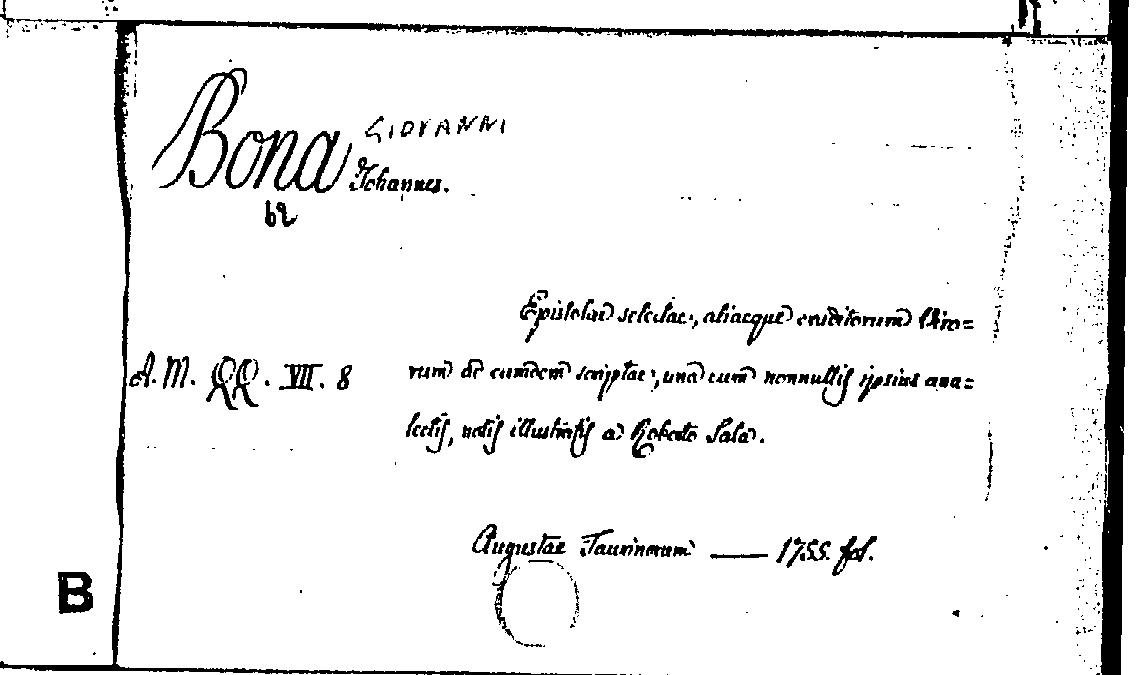 Bona GIOVANNI
Johannes.
62
Epistolae selectae, aliaeque eruditorum Viro=
A. M. QQ. VII. 8 rum de eumdem scriptae, una cum nonnullis ipsius ana=
lectis, notis illustratis a Roberto Sala.
Augustae Taurinorum — 1755. fol.
B